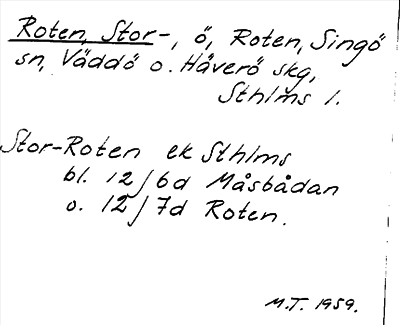 Roten, Stor-, ö, Roten, Singö
sn, Väddö o. Håverö skg,
Sthlms l.
Stor-Roten ek Sthlms
bl. 12/6d Måsbådan
o. 12/7d Roten.
M.T. 1959.